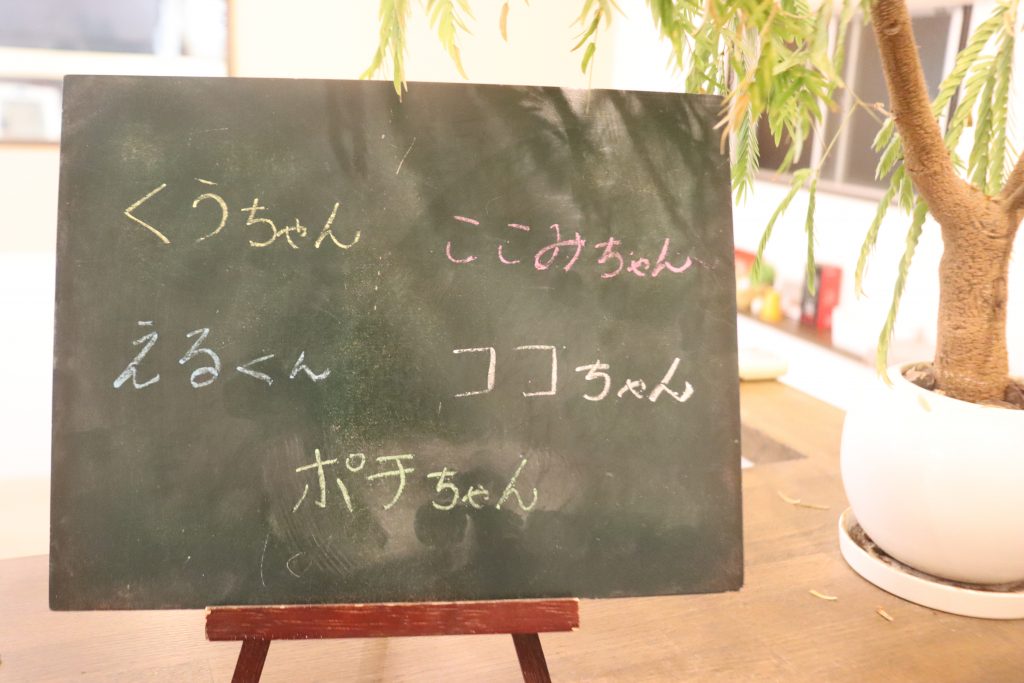 くうちゃん
ここみちゃん
えるくん
ココちゃん
ポチちゃん